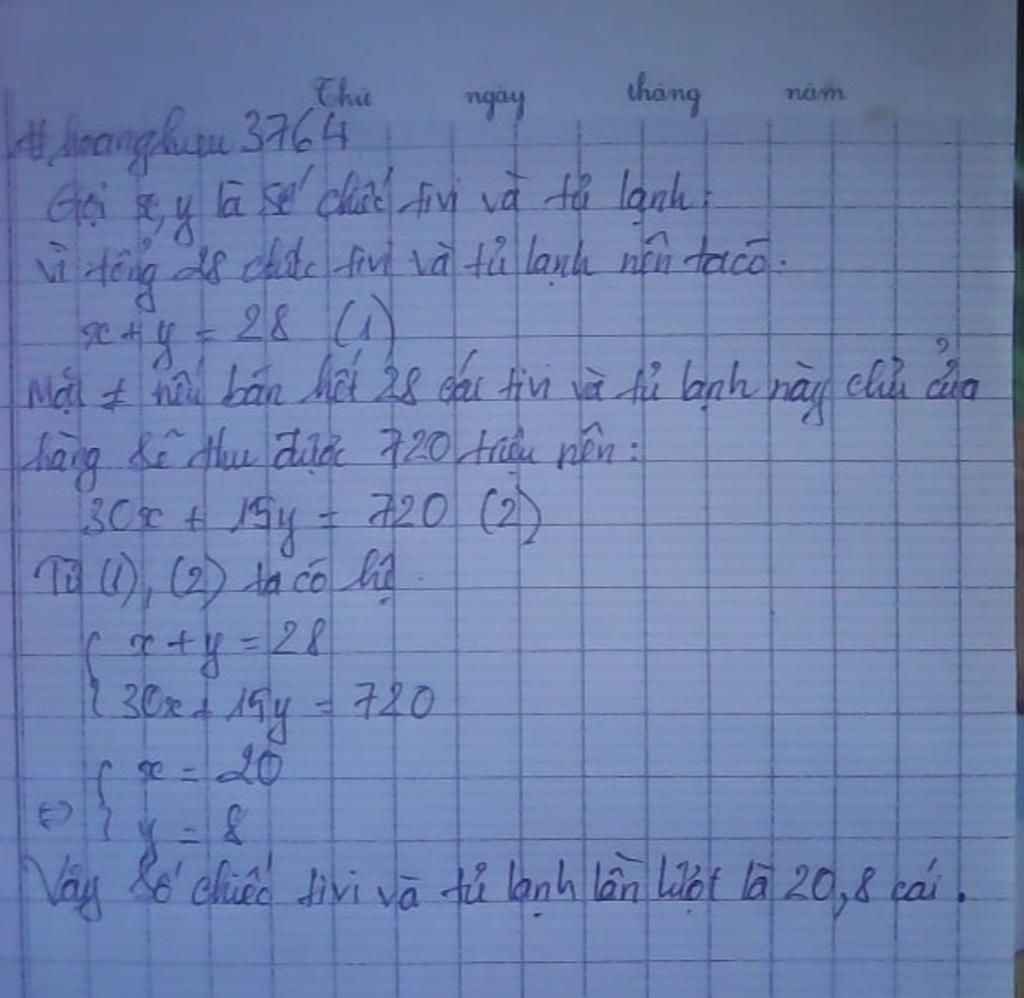 Thứ ngày tháng năm
3764
Gọi x, y là số chiếc tivi và tủ lạnh:
Vì tổng 28 chiếc tivi và tủ lạnh nên ta có.
x + y = 28 (1)
Mặt ≠ nếu bán hết 28 cái tivi và tủ lạnh này chủ cửa
hàng sẽ thu được 720 triệu nên:
30x + 15y = 720 (2)
Từ (1), (2) ta có hệ.
{ x + y = 28
30x + 15y = 720
⇔ { x = 20
y = 8
Vậy số chiếc tivi và tủ lạnh lần lượt là 20, 8 cái.